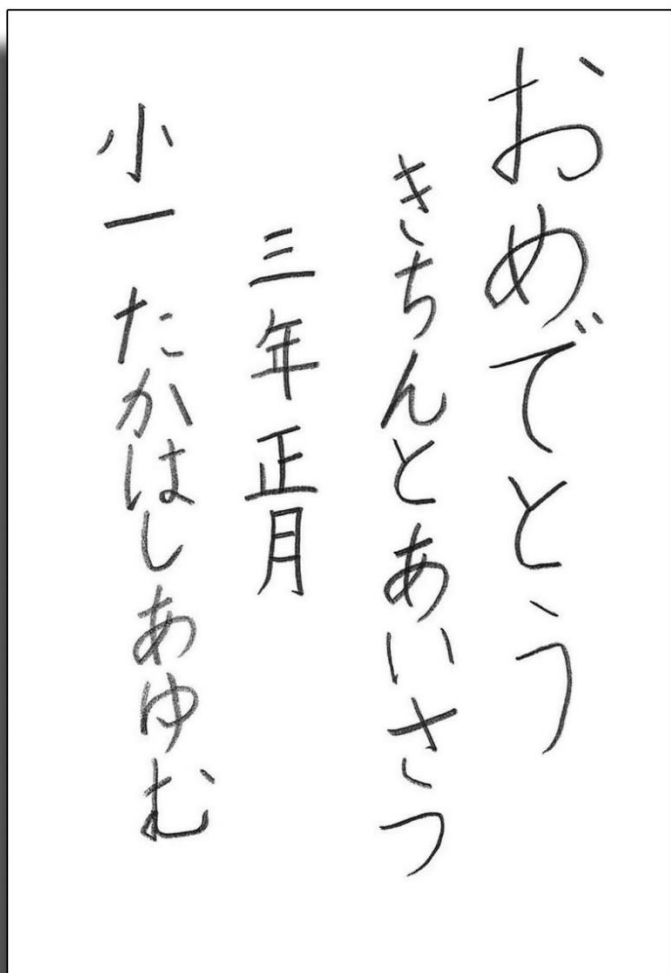 おめでとう
きちんとあいさつ
三年正月
小一 たかはしあゆむ